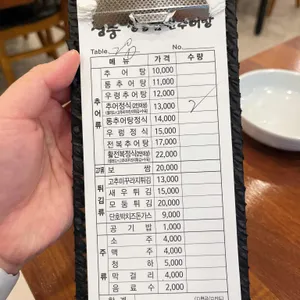 Table No.
메 뉴 가 격 수 량
추어류
추 어 탕 10,000
통 추 어 탕 11,000
우 렁 추 어 탕 12,000
추어정식 13,000 2
통추어탕정식 14,000
우 렁 정 식 15,000
전 복 추 어 탕 17,000
활전복정식 22,000
보 쌈 20,000
튀김류
고추미꾸라지튀김 13,000
새 우 튀 김 15,000
모 둠 튀 김 20,000
단호박치즈돈가스 9,000
공 기 밥 1,000
주류
소 주 4,000
맥 주 4,000
청 하 5,000
막 걸 리 4,000
음 료 수 2,000